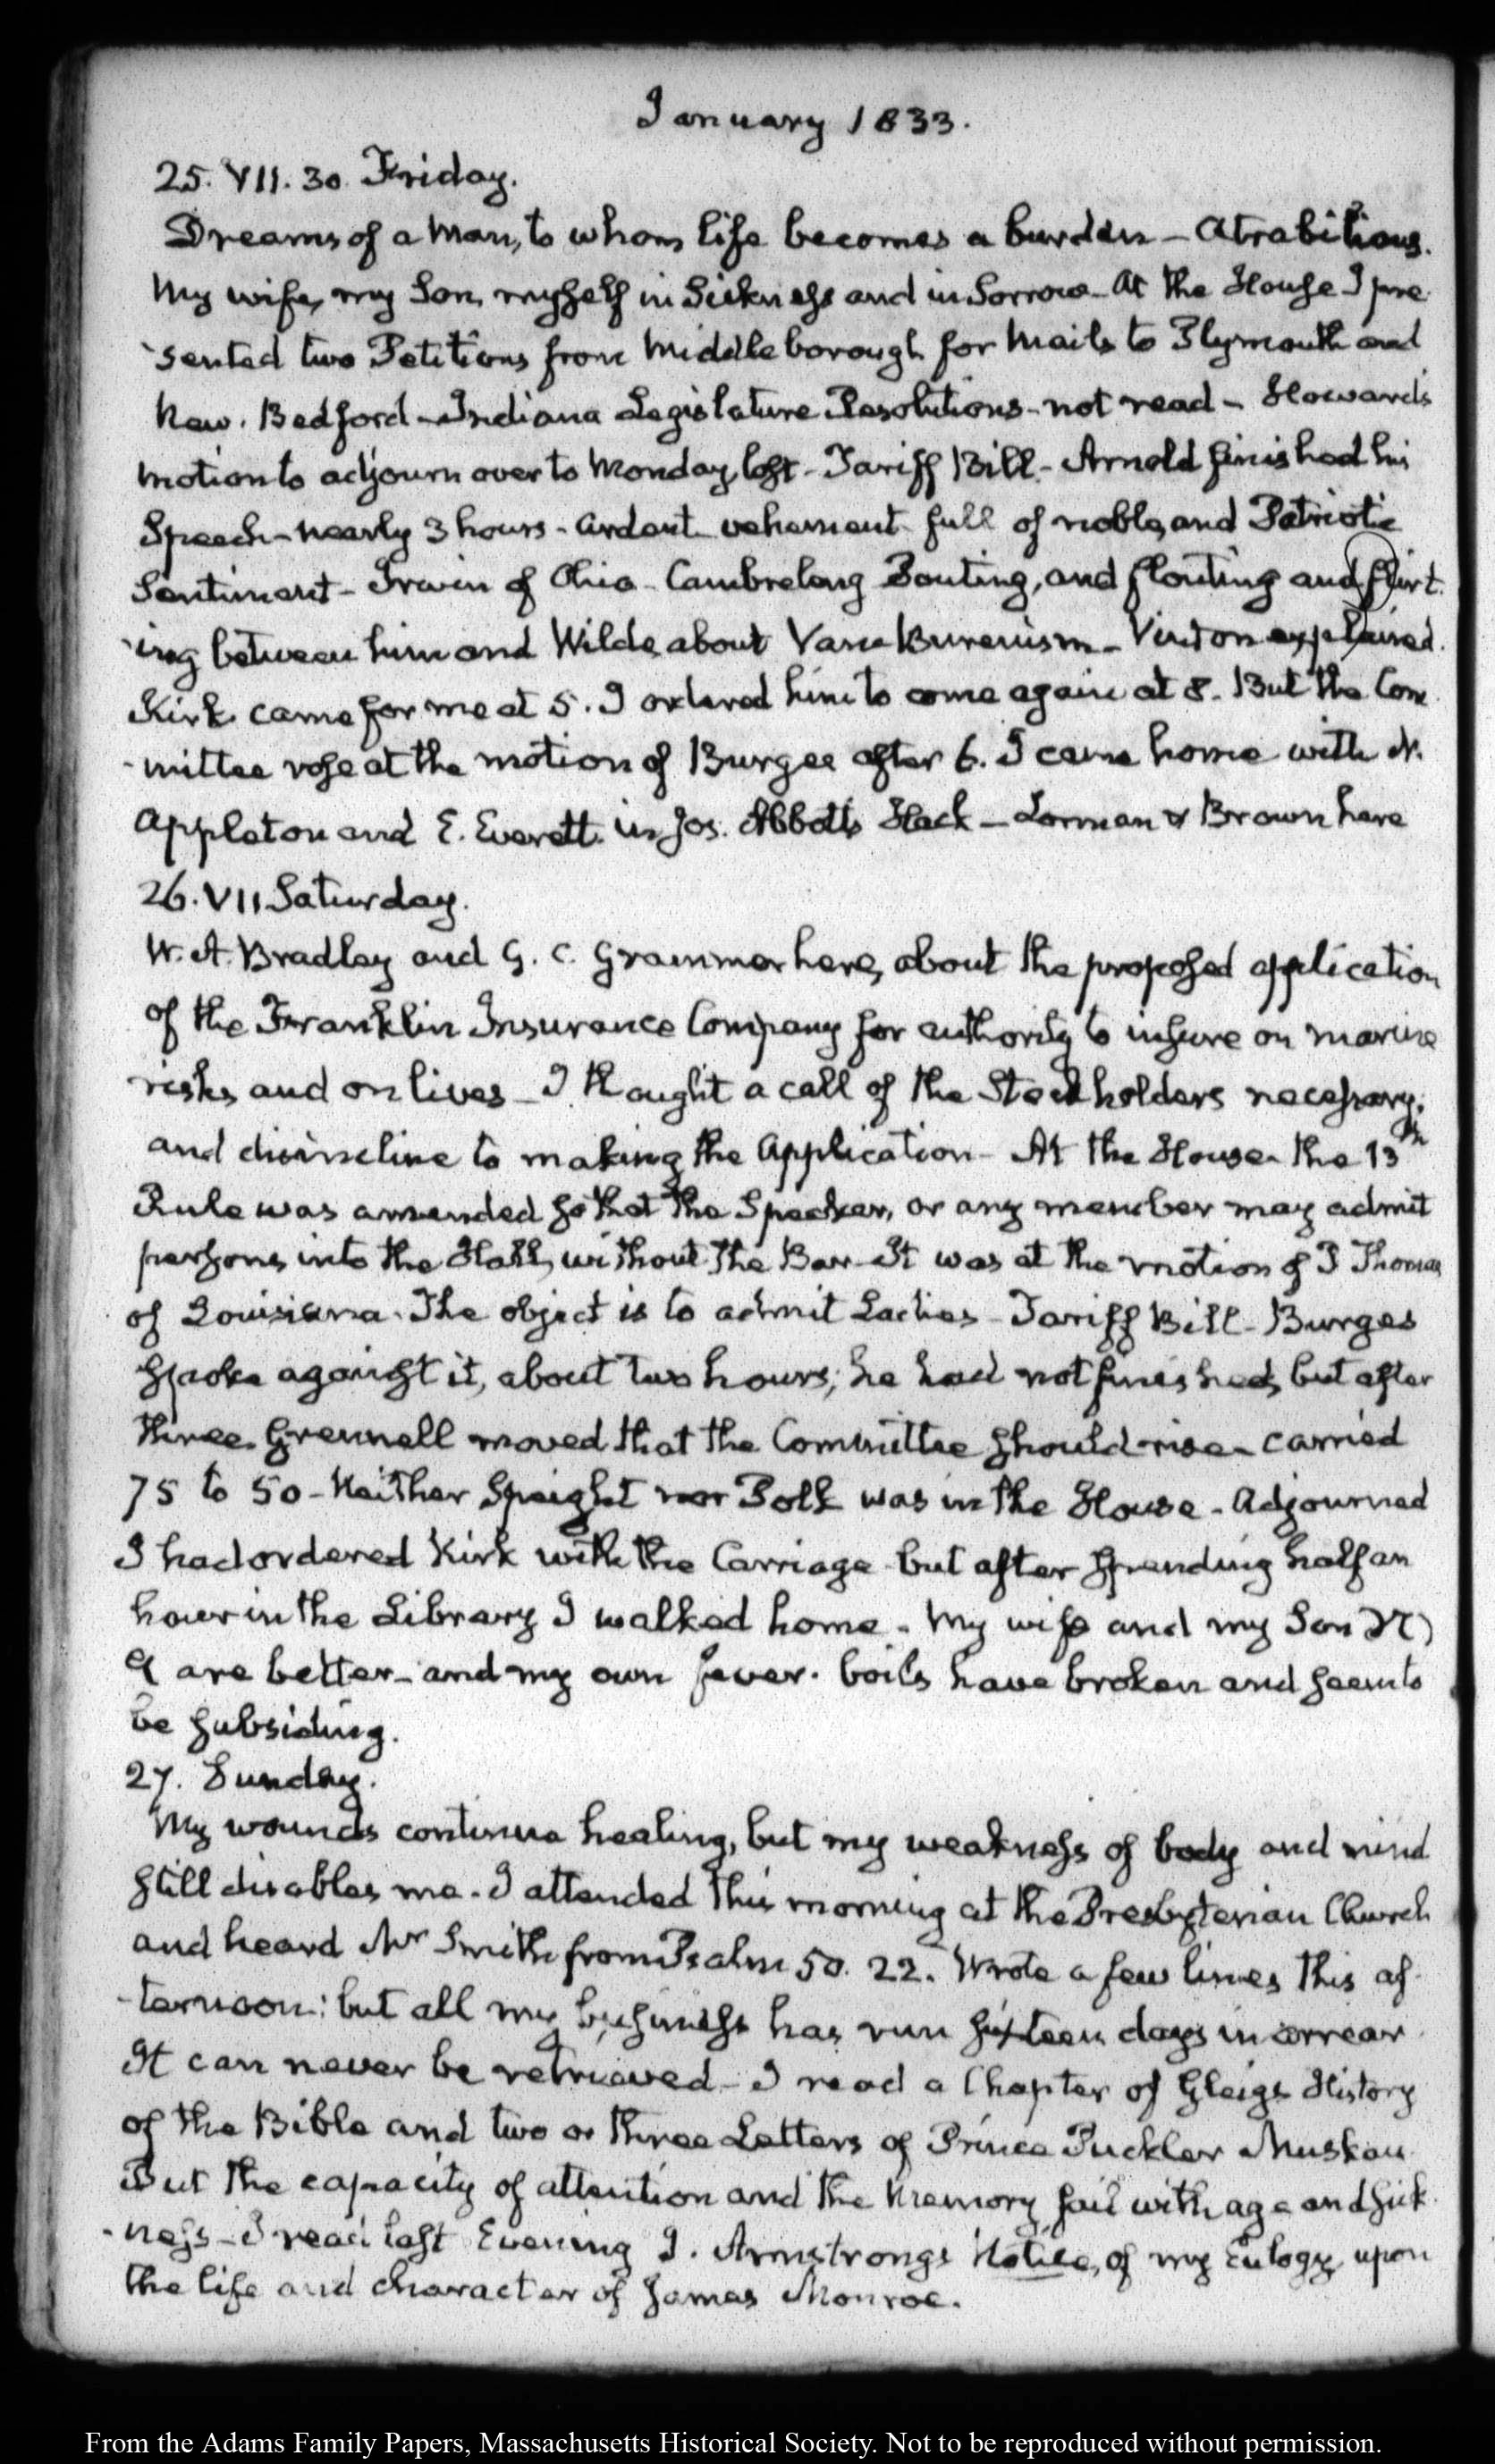 January 1833.
25. VII. 30. Friday.
Dreams of a man, to whom life becomes a burden – Atrabilious.
My wife, my Son, myself in Sickness and in Sorrow – At the House I pre-
-sented two Petitions from Middleborough for Mails to Plymouth and
New-Bedford – Indiana Legislature Resolutions – not read – Howard's
motion to adjourn over to Monday, lost – Tariff Bill – Arnold finished his
Speech – nearly 3 hours – ardent vehement full of noble, and Patriotic
Sentiment – Irwin of Ohio – Cambreleng Pouting, and flouting and flirt-
-ing between him and Wilde, about Van Burenism – Vinton explained.
Kirk came for me at 5. I ordered him to come again at 8. But the Com-
-mittee rose at the motion of Burges after 6. I came home with N.
Appleton and E. Everett in Jos. Abbotts Hack – Lorman & Brown here
26. VII Saturday.
W. A. Bradley and G. C. Grammer here, about the proposed application
of the Franklin Insurance Company for authority to insure on marine
risks and on lives – I thought a call of the Stockholders necessary,
and disincline to making the Application – At the House the 13th
Rule was amended so that the Speaker, or any member may admit
persons into the Hall, without the Bar – It was at the motion of P Thomas
of Louisiana. The object is to admit Ladies – Tariff Bill – Burges
spoke against it, about two hours; he had not finished, but after
three Grennell moved that the Committee should rise – carried
75 to 50 – Neither Speight nor Polk was in the House – Adjourned
I had ordered Kirk with the Carriage but after spending half an
hour in the Library I walked home. My wife and my Son
are better – and my own fever-boils have broken and seem to
be subsiding.
27. Sunday.
My wounds continue healing, but my weakness of body and mind
still disables me. I attended this morning at the Presbyterian Church
and heard Mr Smith from Psalm 50. 22. Wrote a few lines this af-
-ternoon: but all my business has run sixteen days in arrear
It can never be retrieved – I read a Chapter of Gleigs History
of the Bible and two or three Letters of Prince Puckler Muskau
But the capacity of attention and the memory fail with age and sick-
-ness – I read last Evening J. Armstrongs Notice, of my Eulogy upon
the life and character of James Monroe.
From the Adams Family Papers, Massachusetts Historical Society. Not to be reproduced without permission.